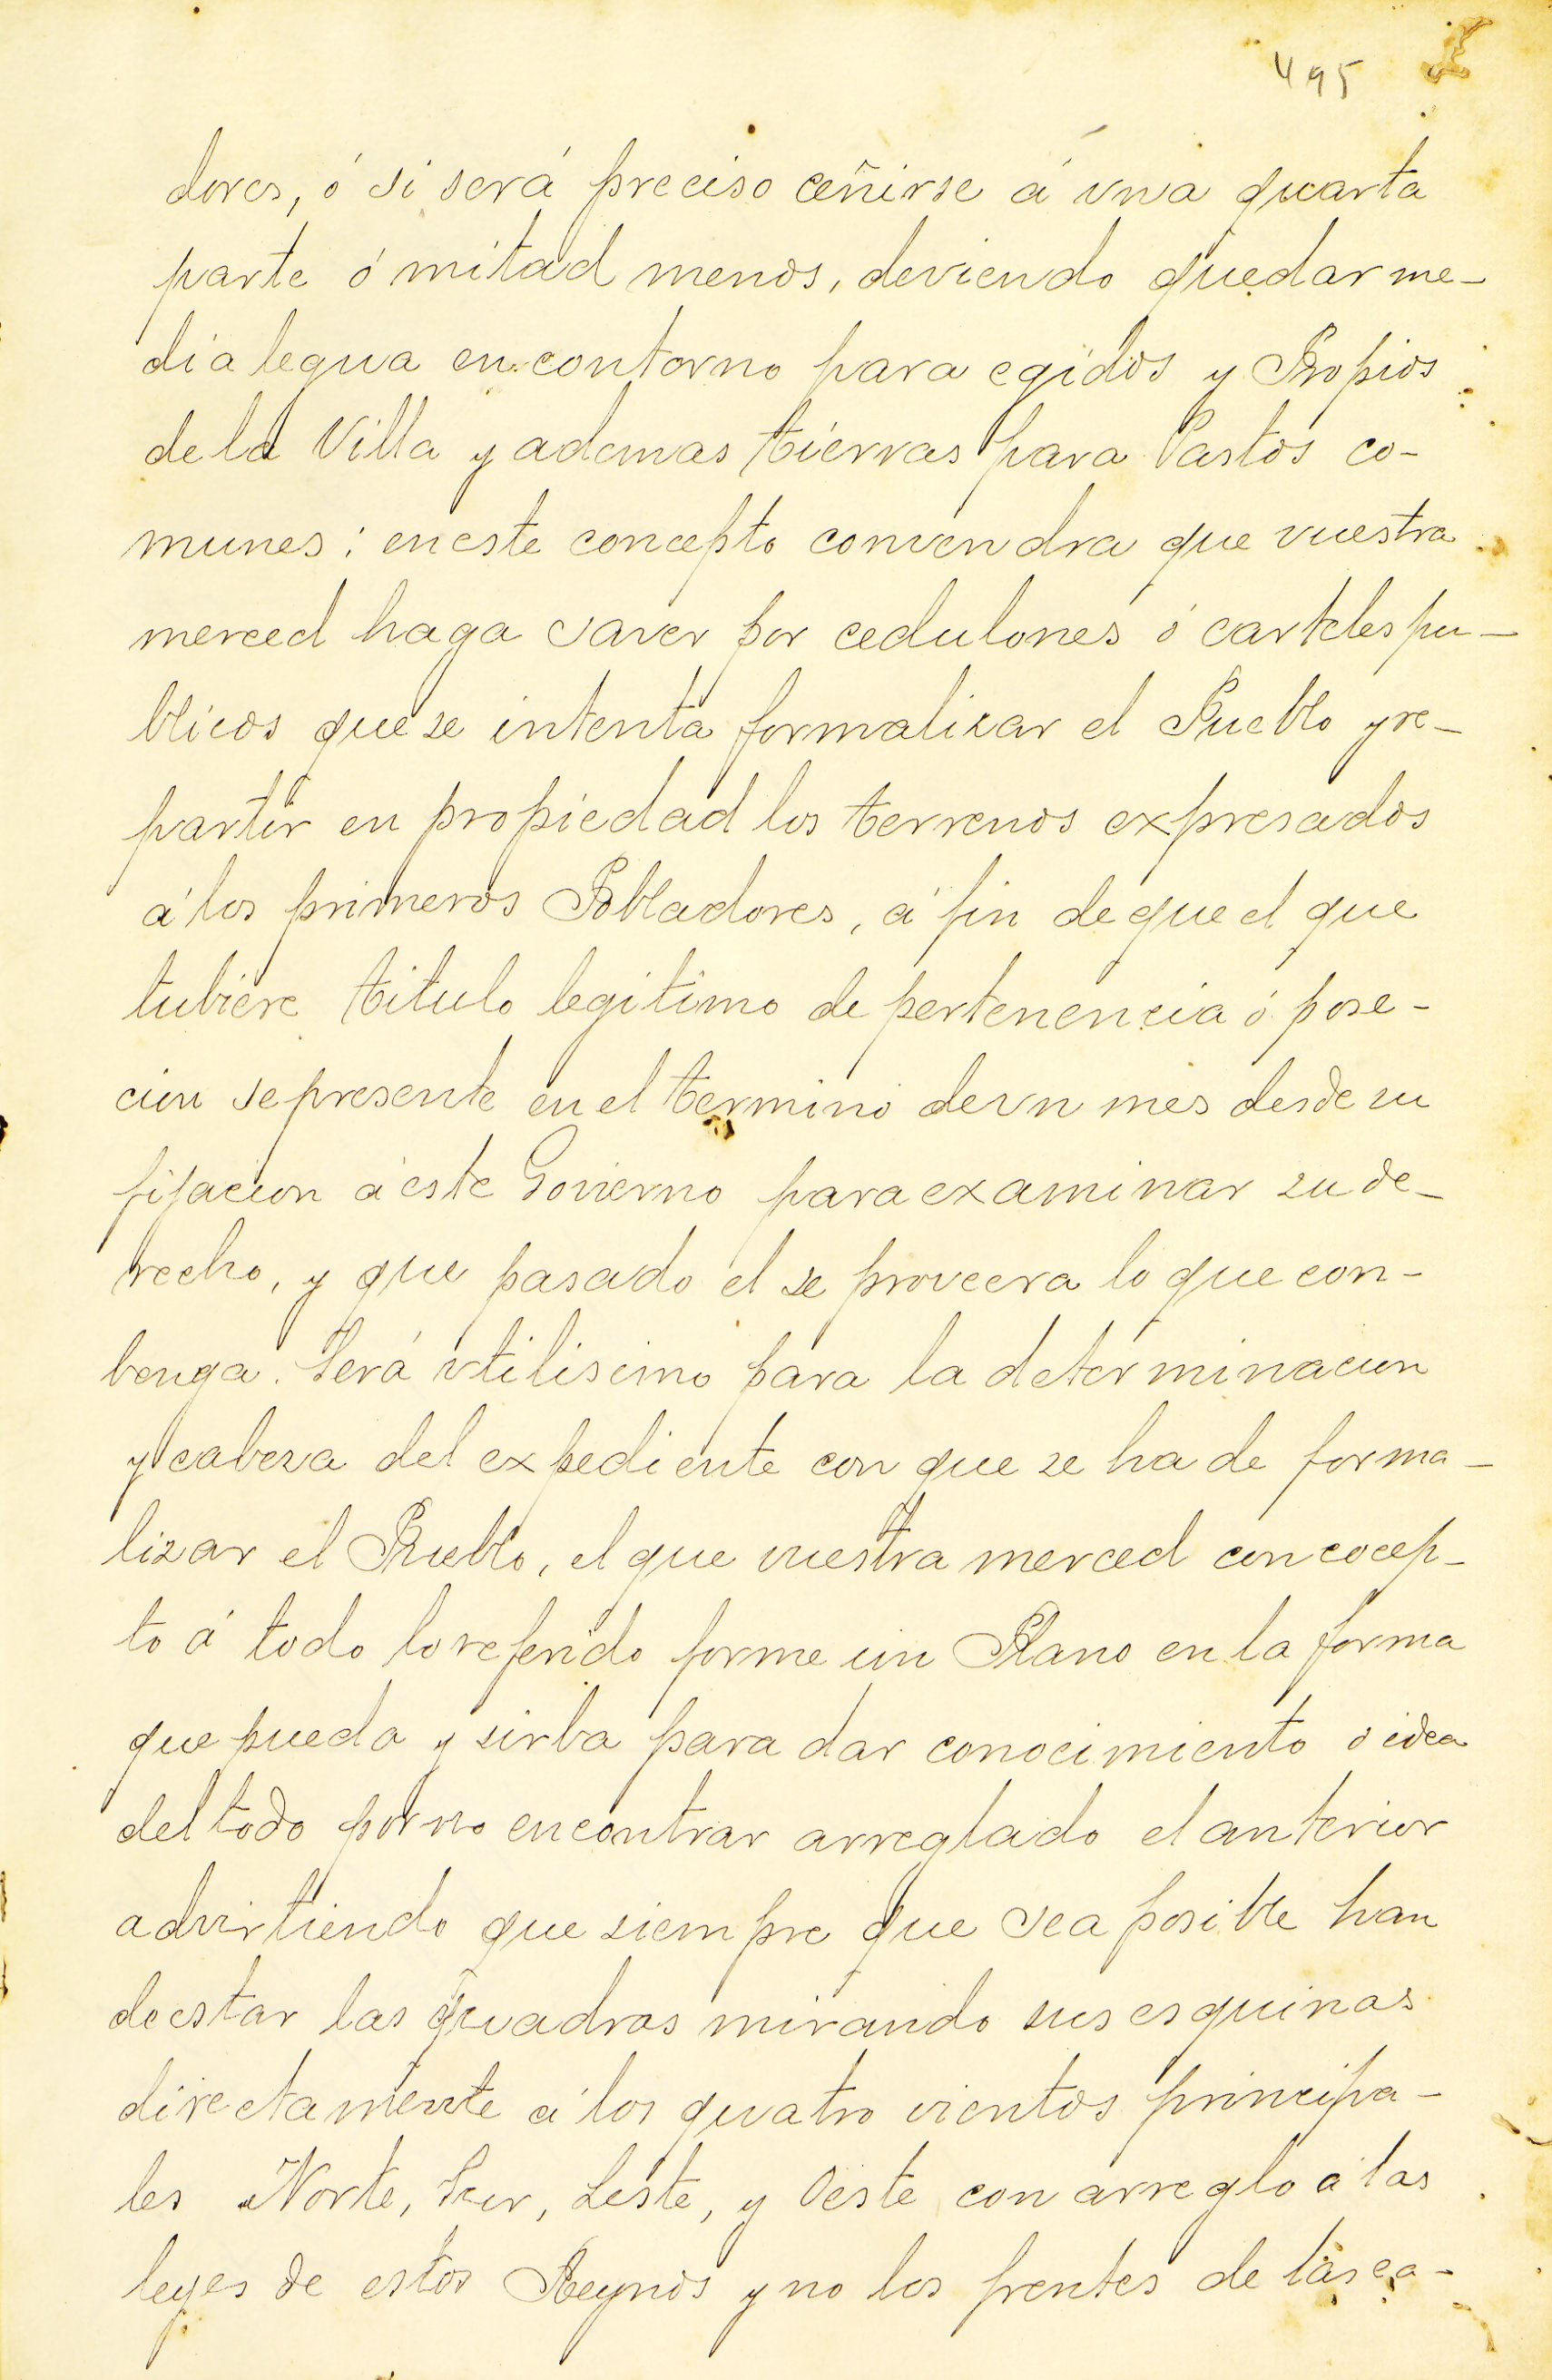 495
dores, ó si será preciso ceñirse á una quarta
parte ó mitad menos, deviendo quedar me-
dia legua en contorno para egidos y Propios
de la Villa y ademas tierras para Pastos co-
munes: en este concepto convendra que vuestra
merced haga saver por cedulones ó carteles pu-
blicos que se intenta formalizar el Pueblo y re-
partir en propiedad los terrenos expresados
á los primeros Pobladores, á fin de que el que
tubiere titulo legitimo de pertenencia ó pose-
cion se presente en el termino de vn mes desde su
fijacion á este Govierno para examinar su de-
recho, y que pasado el se proveera lo que con-
benga. Será vtilisimo para la determinacion
y cabeza del expediente con que se ha de forma-
lizar el Pueblo, el que vuestra merced con cocep-
to á todo lo referido forme un Plano en la forma
que pueda y sirba para dar conocimiento o idea
del todo por no encontrar arreglado el anterior
advirtiendo que siempre que sea posible han
de estar las quadras mirando sus esquinas
directamente á los quatro vientos principa-
les Norte, Sur, Leste, y Oeste con arreglo á las
leyes de estos Reynos y no los frentes de las ca-